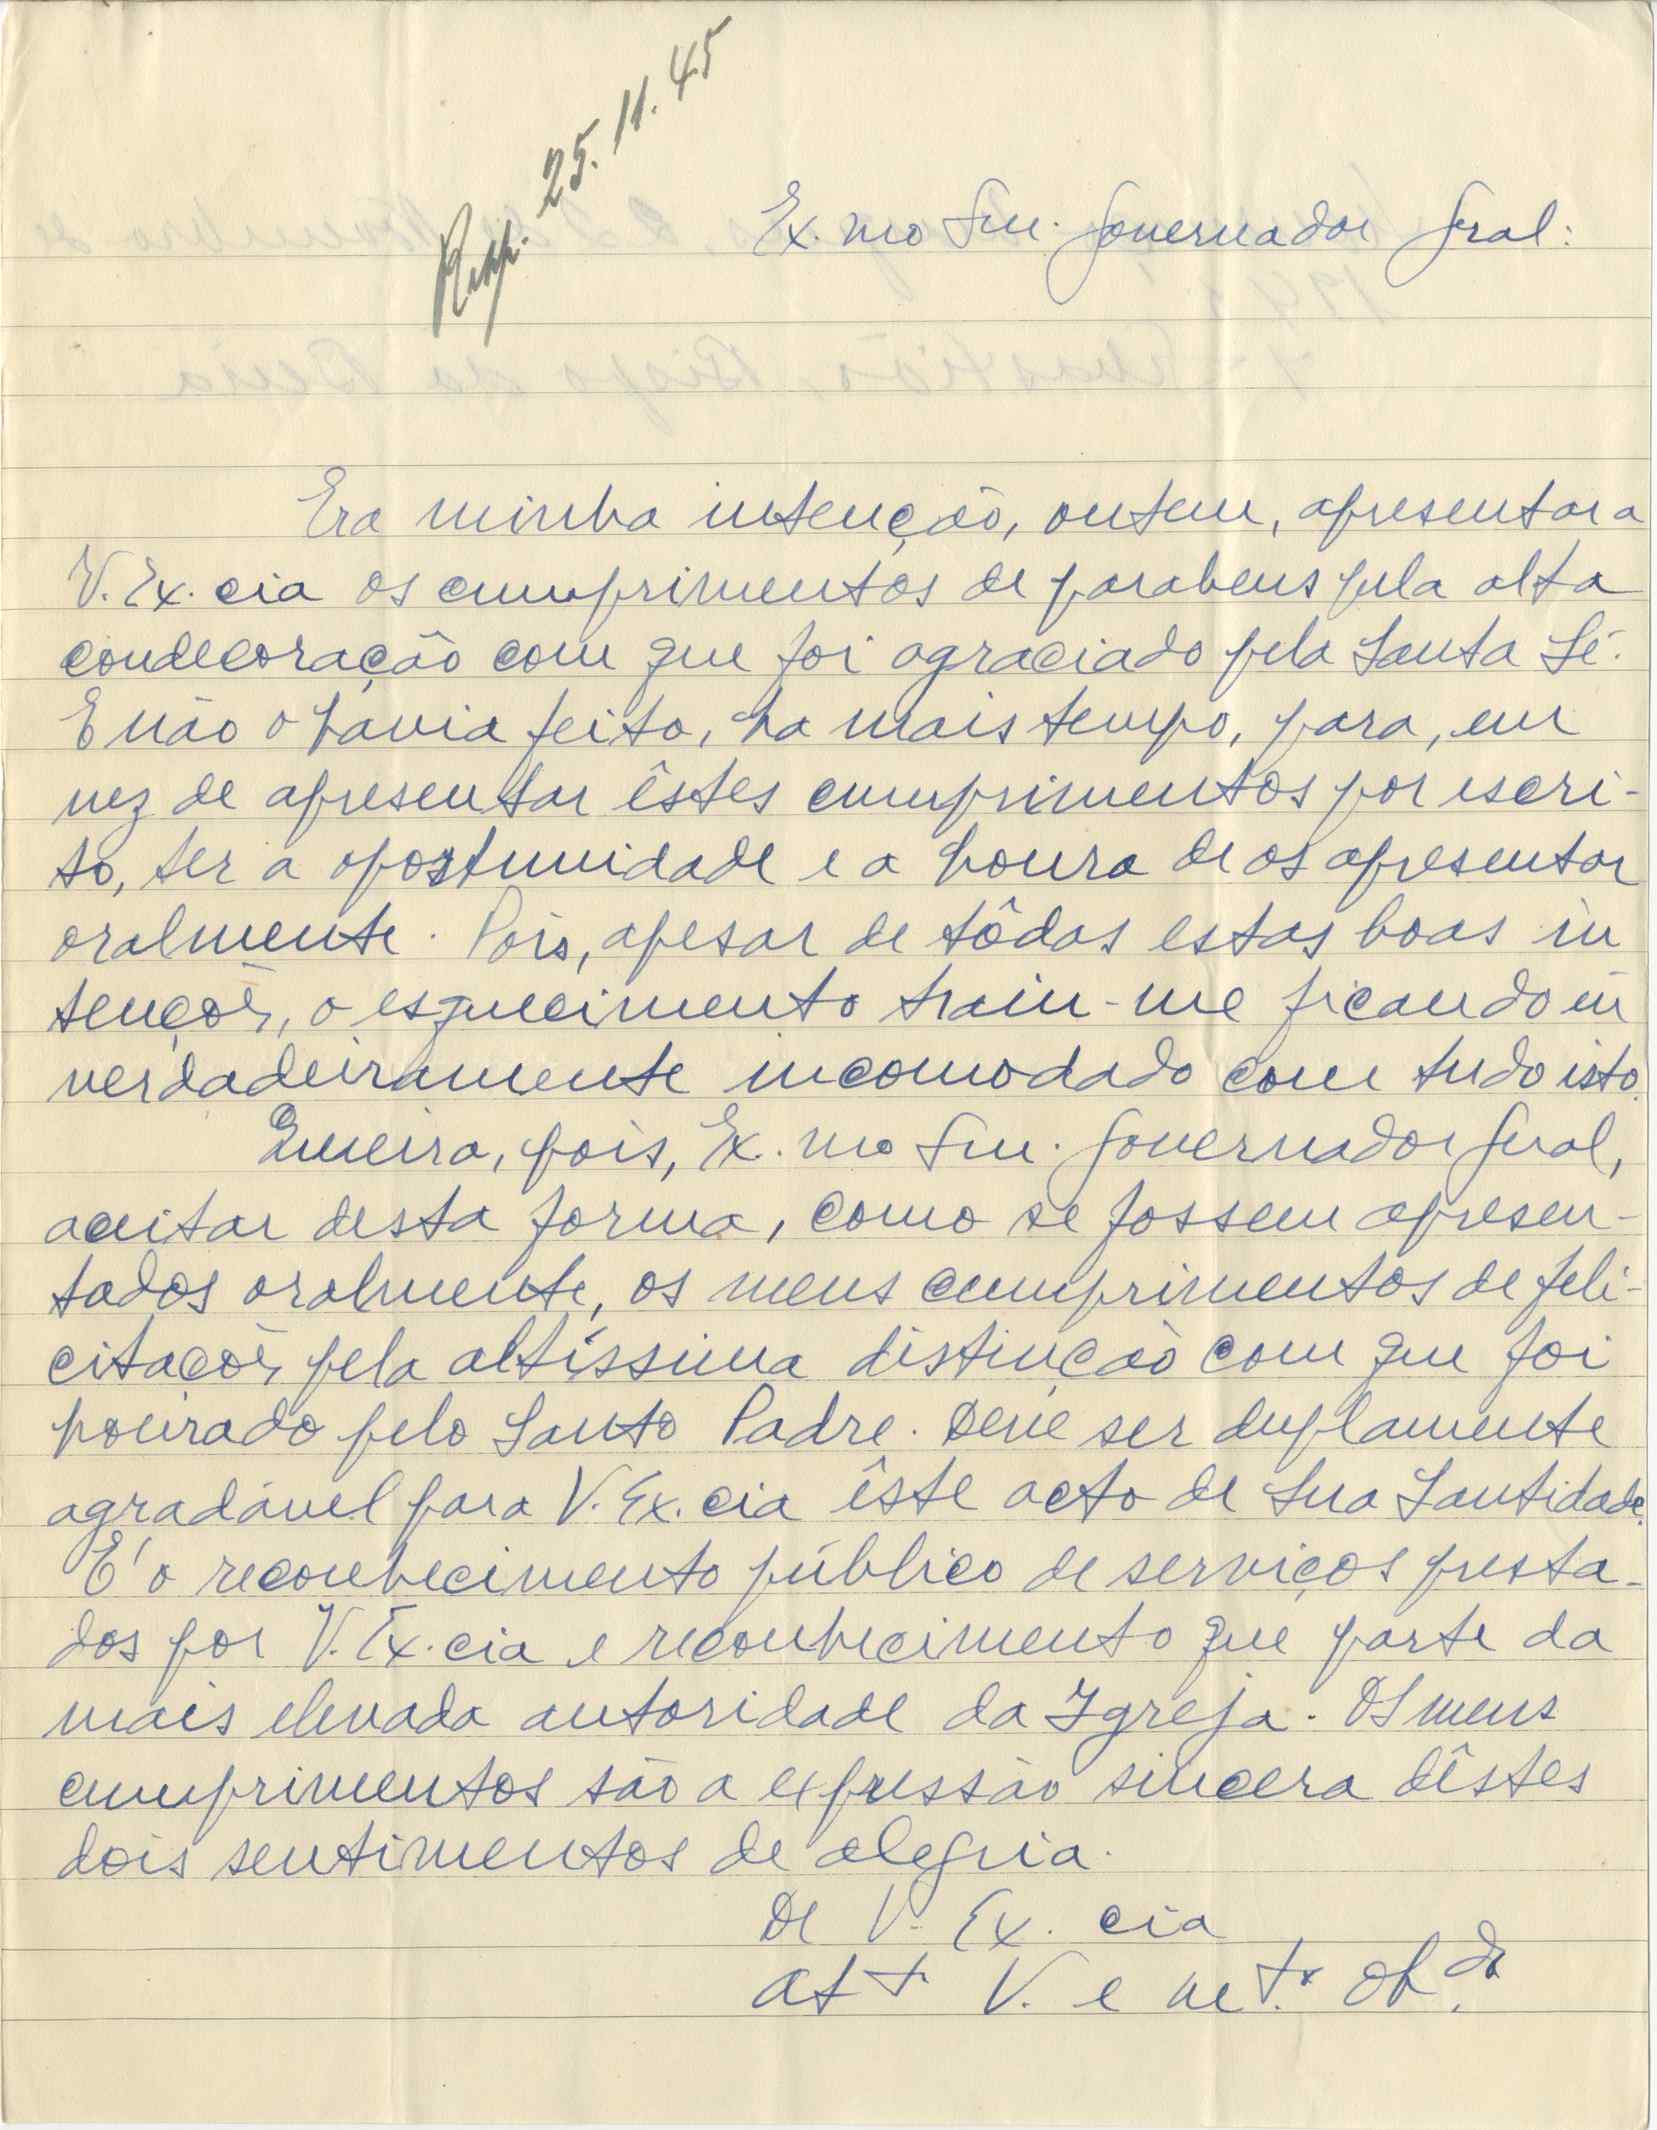 Resp. 25.11.45
Ex.mo Snr. Governador Geral:
Era minha intenção, ontem, apresentar a
V. Ex.cia os cumprimentos de parabens pela alta
condecoração com que foi agraciado pela Santa Sé.
E não o havia feito, ha mais tempo, para, em
vez de apresentar êstes cumprimentos por escri-
to, ter a oportunidade e a honra de os apresentar
oralmente. Pois, apesar de tôdas estas boas in
tenções, o esquecimento traiu-me ficando eu
verdadeiramente incomodado com tudo isto.
Queira, pois, Ex.mo Snr. Governador Geral,
aceitar desta forma, como se fossem apresen-
tados oralmente, os meus cumprimentos de feli-
citações pela altíssima distinção com que foi
honrado pelo Santo Padre. Deve ser duplamente
agradável para V. Ex.cia êste acto de Sua Santidade.
E' o reconhecimento público de serviços presta-
dos por V. Ex.cia e reconhecimento que parte da
mais elevada autoridade da Igreja. Os meus
cumprimentos são a expressão sincera dêstes
dois sentimentos de alegria.
De V. Ex.cia
V. e